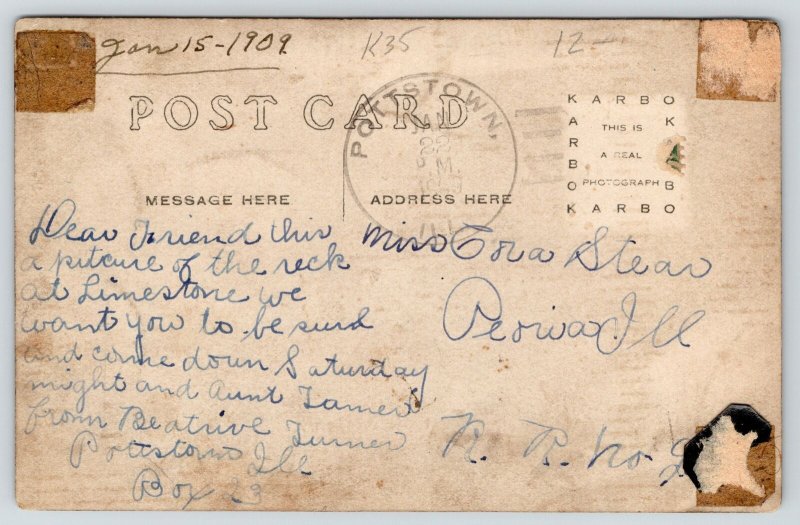 Jan 15-1909
K35
12-
POST CARD
POTTSTOWN,
JAN
22
P M.
ILL
KARBO
THIS IS
A REAL
PHOTOGRAPH
KARBO
MESSAGE HERE
ADDRESS HERE
Dear Friend this
a pitcure of the reck
at Limestone we
want you to be surd
and come down Saturday
night and Aunt
from Beatrive Turner
Pottstown Ill
Box 23
Miss Cora Stear
Peoria. Ill
R. R. No